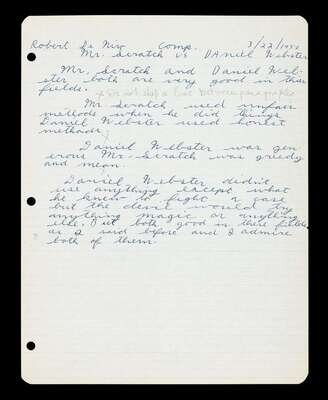 Robert De Niro Comp. 3/22/
Mr. Scratch vs DAniel Webster
Mr. Scratch and Daniel Web-
ster both are very good in their
fields.
Do not skip a line between paragraphs
Mr Scratch used unfair
methods when he did things
Daniel Webster used honest
methods.
Daniel Webster was gen
erous Mr. Scratch was greedy
and mean.
Daniel Webster didn't
use anything except what
he knew to fight a case
but the devil would try
anything magic or anything
else. both good in there fields
as I said before and I admire
both of them